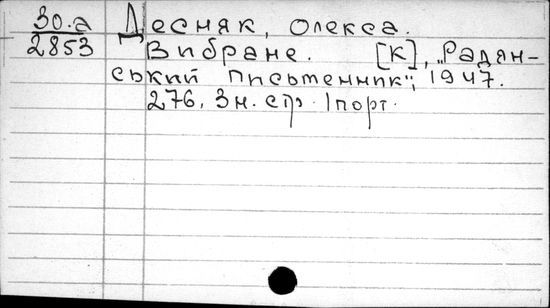 30.а Десняк, Олекса.
2853 Вибране. [К], „Радян-
ський письменник", 1947.
276, 3 н. стр. 1 порт.